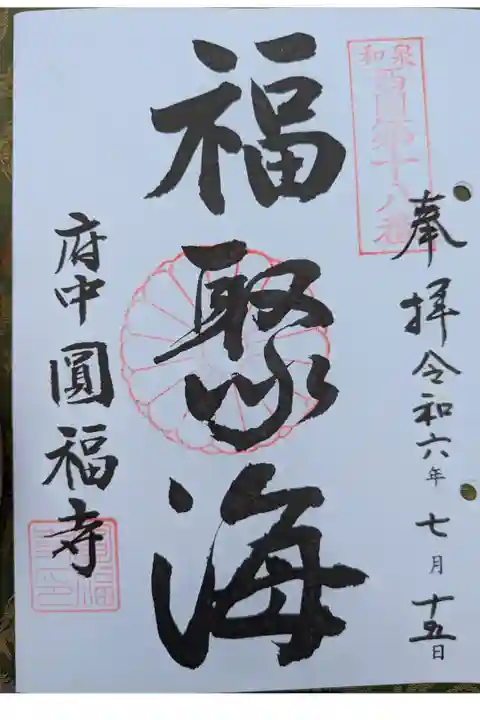 和泉
西國第十八番
奉拝令和六年七月十五日
福聚海
府中圓福寺